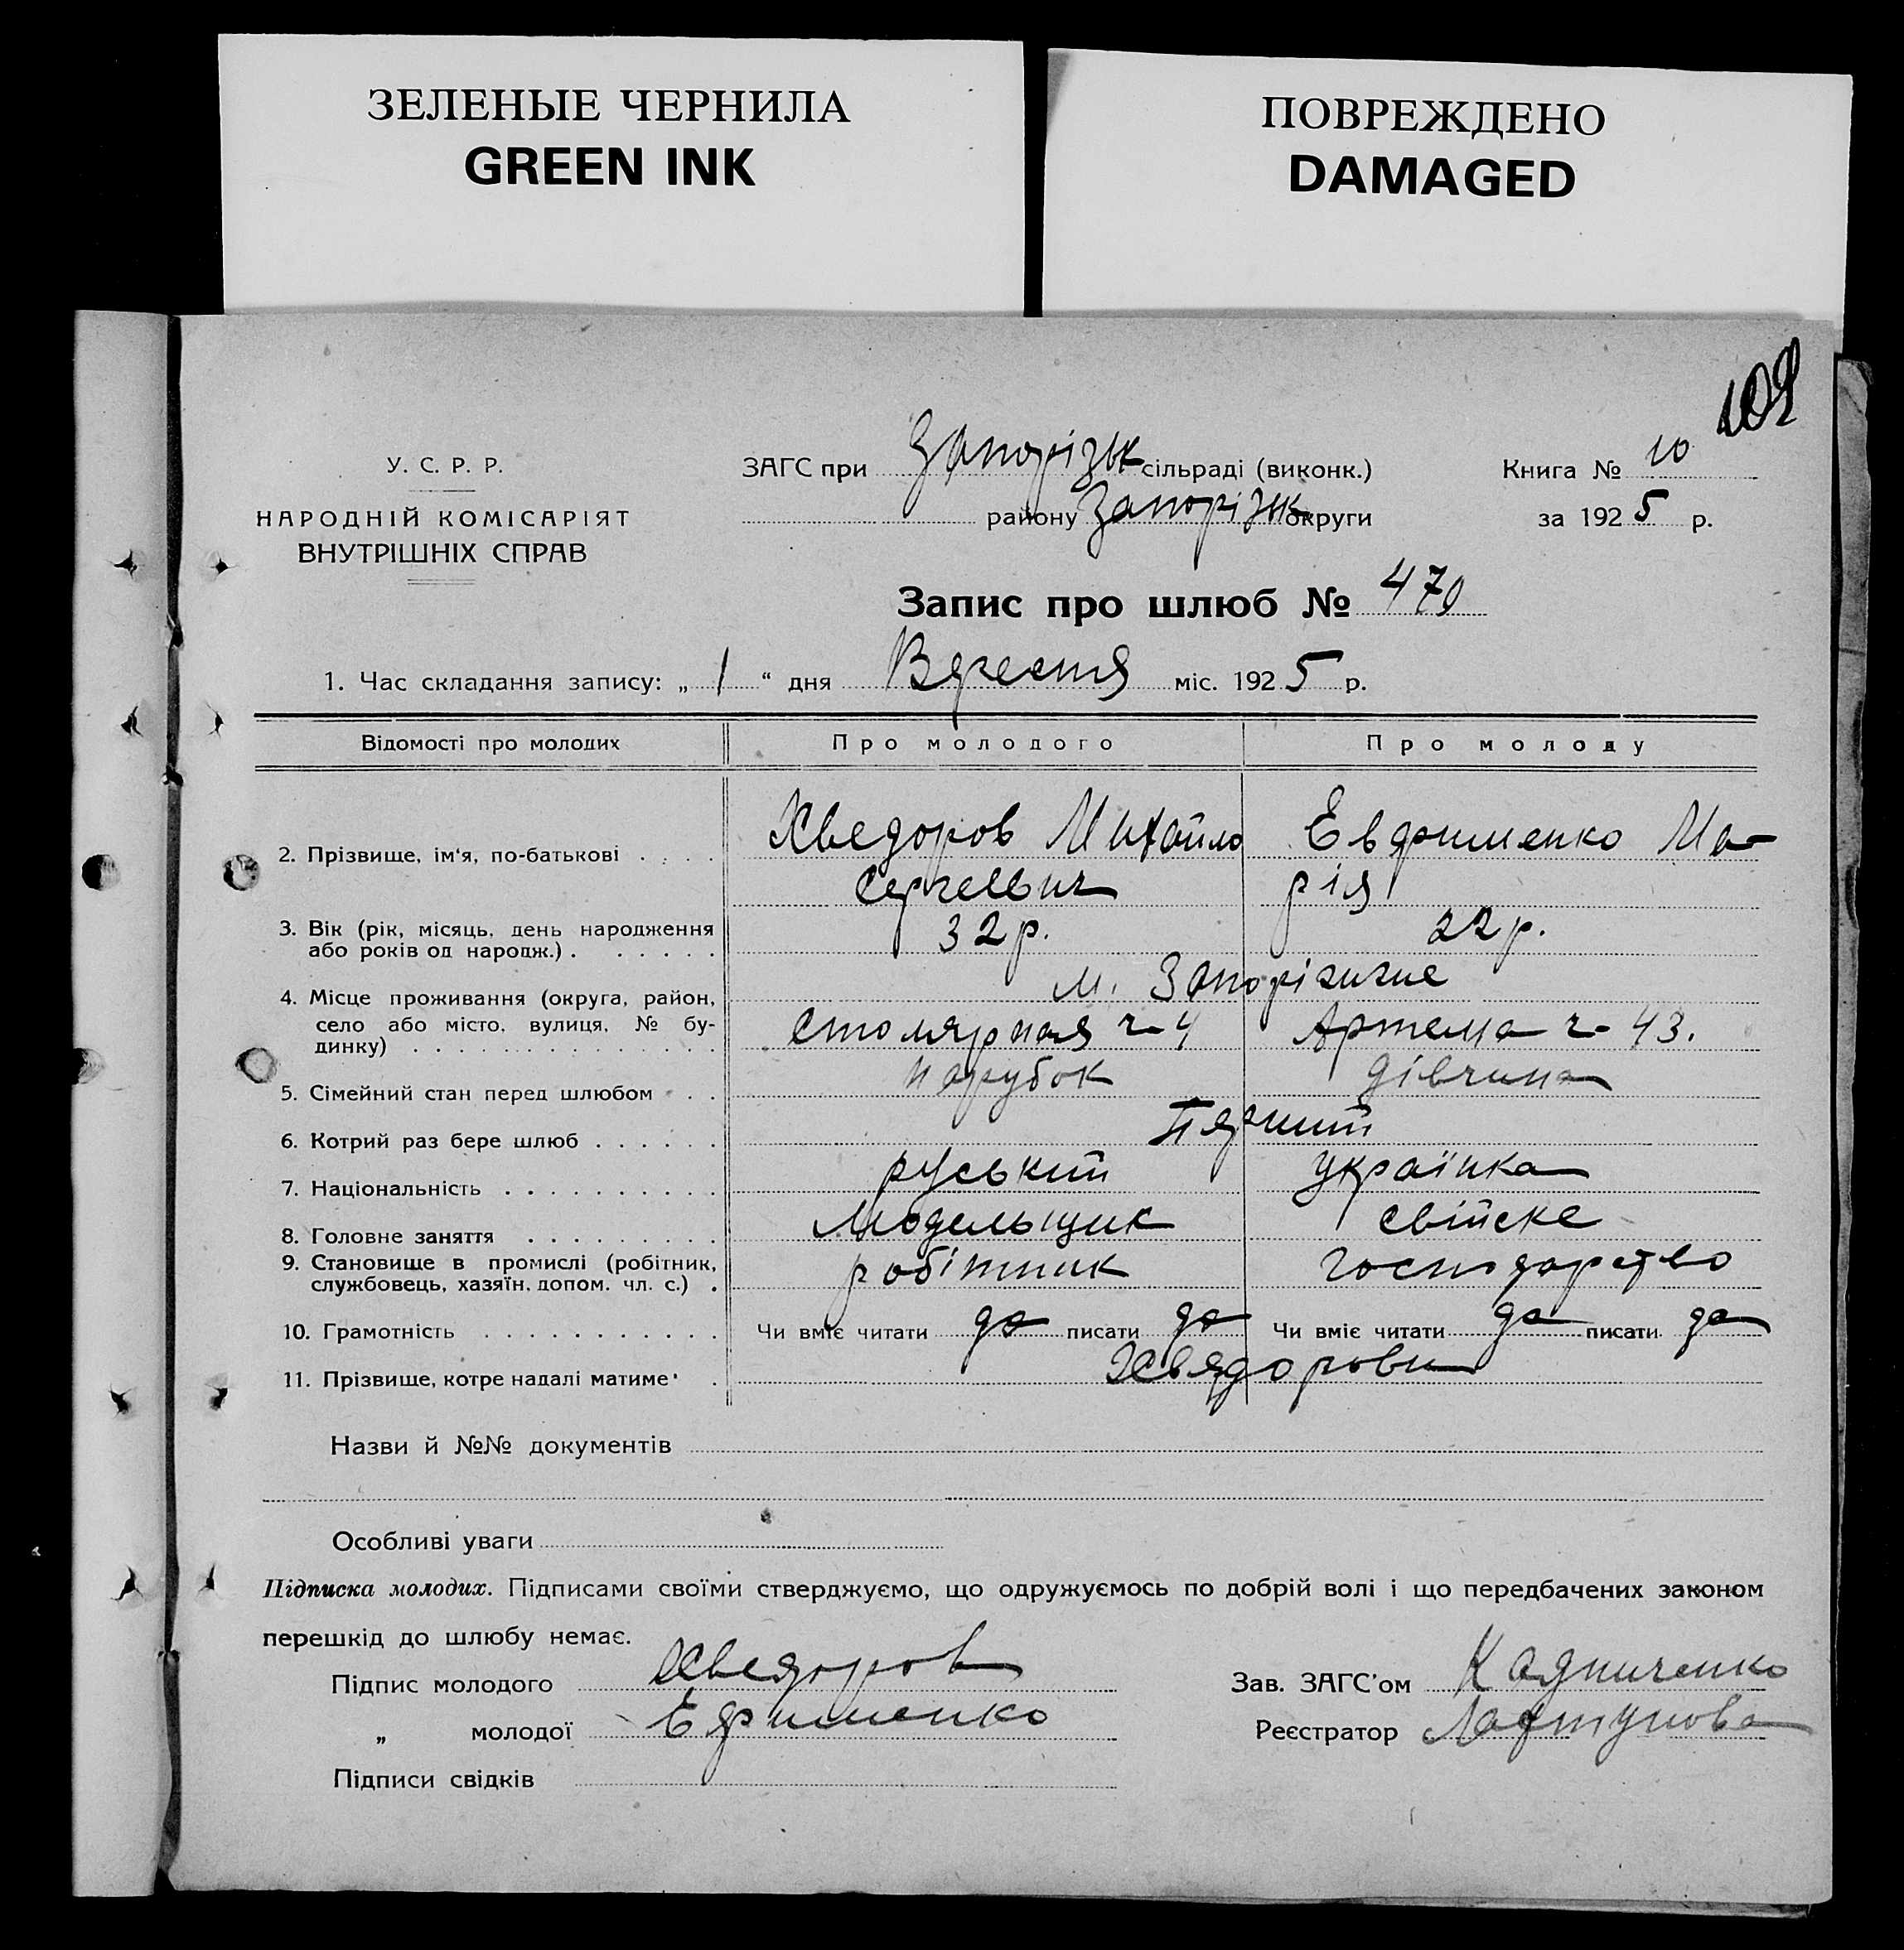 ЗЕЛЕНЫЕ ЧЕРНИЛА
GREEN INK
ПОВРЕЖДЕНО
DAMAGED
102
У. С. Р. Р.
НАРОДНІЙ КОМІСАРІЯТ
ВНУТРІШНІХ СПРАВ
ЗАГС при Запорізьк сільраді (виконк.)
району Запорізьк округи
Книга № 10
за 1925 р.
Запис про шлюб № 470
1. Час складання запису: „ 1 “ дня Вересня міс. 1925 р.
Відомості про молодих Про молодого Про молоду
2. Прізвище, ім‘я, по-батькові Хведоров Михайло Евфименко Ма-
Сергеевич рія
3. Вік (рік, місяць, день народження
або років од народж.) 32 р. 22 р.
м. Запоріжже
4. Місце проживання (округа, район,
село або місто, вулиця, № бу-
динку) Столярная ч- 4 Артема ч- 43.
5. Сімейний стан перед шлюбом парубок дівчина
6. Котрий раз бере шлюб Перший
7. Національність руський українка
8. Головне заняття Модельщик свійске
9. Становище в промислі (робітник,
службовець, хазяїн, допом. чл. с.) робітник господарство
10. Грамотність Чи вміє читати да писати да Чи вміє читати да писати да
11. Прізвище, котре надалі матиме Хведорови
Назви й №№ документів
Особливі уваги
Підписка молодих. Підписами своїми стверджуємо, що одружуємось по добрій волі і що передбачених законом
перешкід до шлюбу немає.
Підпис молодого Хведоров
„ молодої Ефименко
Підписи свідків
Зав. ЗАГС’ом
Реєстратор